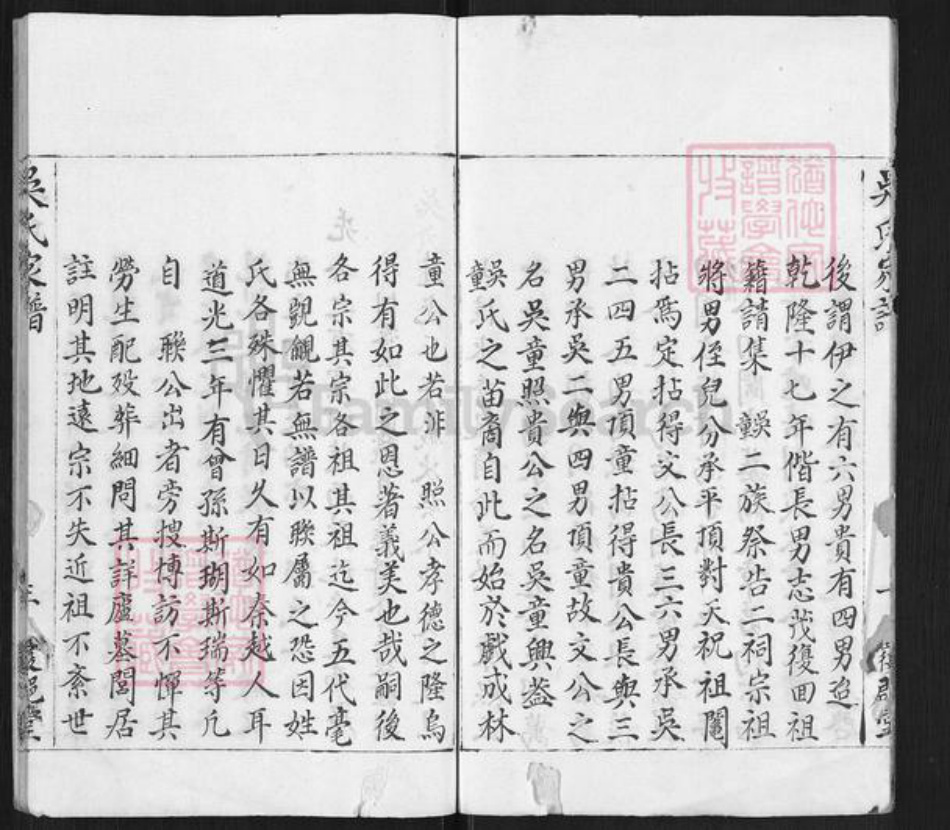 後謂伊之有六男貴有四男迨
乾隆十七年偕長男志茂復回祖
籍請集 吳童二族祭告二祠宗祖
將男侄兒分承平頂對天祝祖鬮
拈焉定拈得文公長三六男承吳
二四五男頂童拈得貴公長與三
男承吳二與四男頂童故文公之
名吳童照貴公之名吳童興蓋
吳童氏之苗裔自此而始於戲成林
童公也若非 照公孝德之隆烏
得有如此之恩著義美也哉嗣後
各宗其宗各祖其祖迄今五代毫
無覬覦若無譜以聯屬之恐因姓
氏各殊懼其日久有如秦越人耳
道光三年有曾孫斯瑚斯瑞等凡
自 聯公出者旁搜博訪不憚其
勞生配歿葬細問其詳廬墓閭居
註明其地遠宗不失近祖不紊世
吳氏家譜
FamilySearch